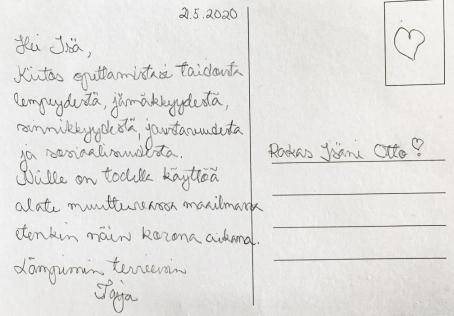 2.5.2020
Hei Isä,
Kiitos opettamistasi taidoista
lempeydestä, jämäkkyydestä,
sinnikkyydestä, joustavuudesta
ja sosiaalisuudesta.
Niille on todella käyttöä
alate muuttuvassa maailmassa
etenkin näin korona aikana.
Lämpimin terveisin
Rakas Isäni Otto